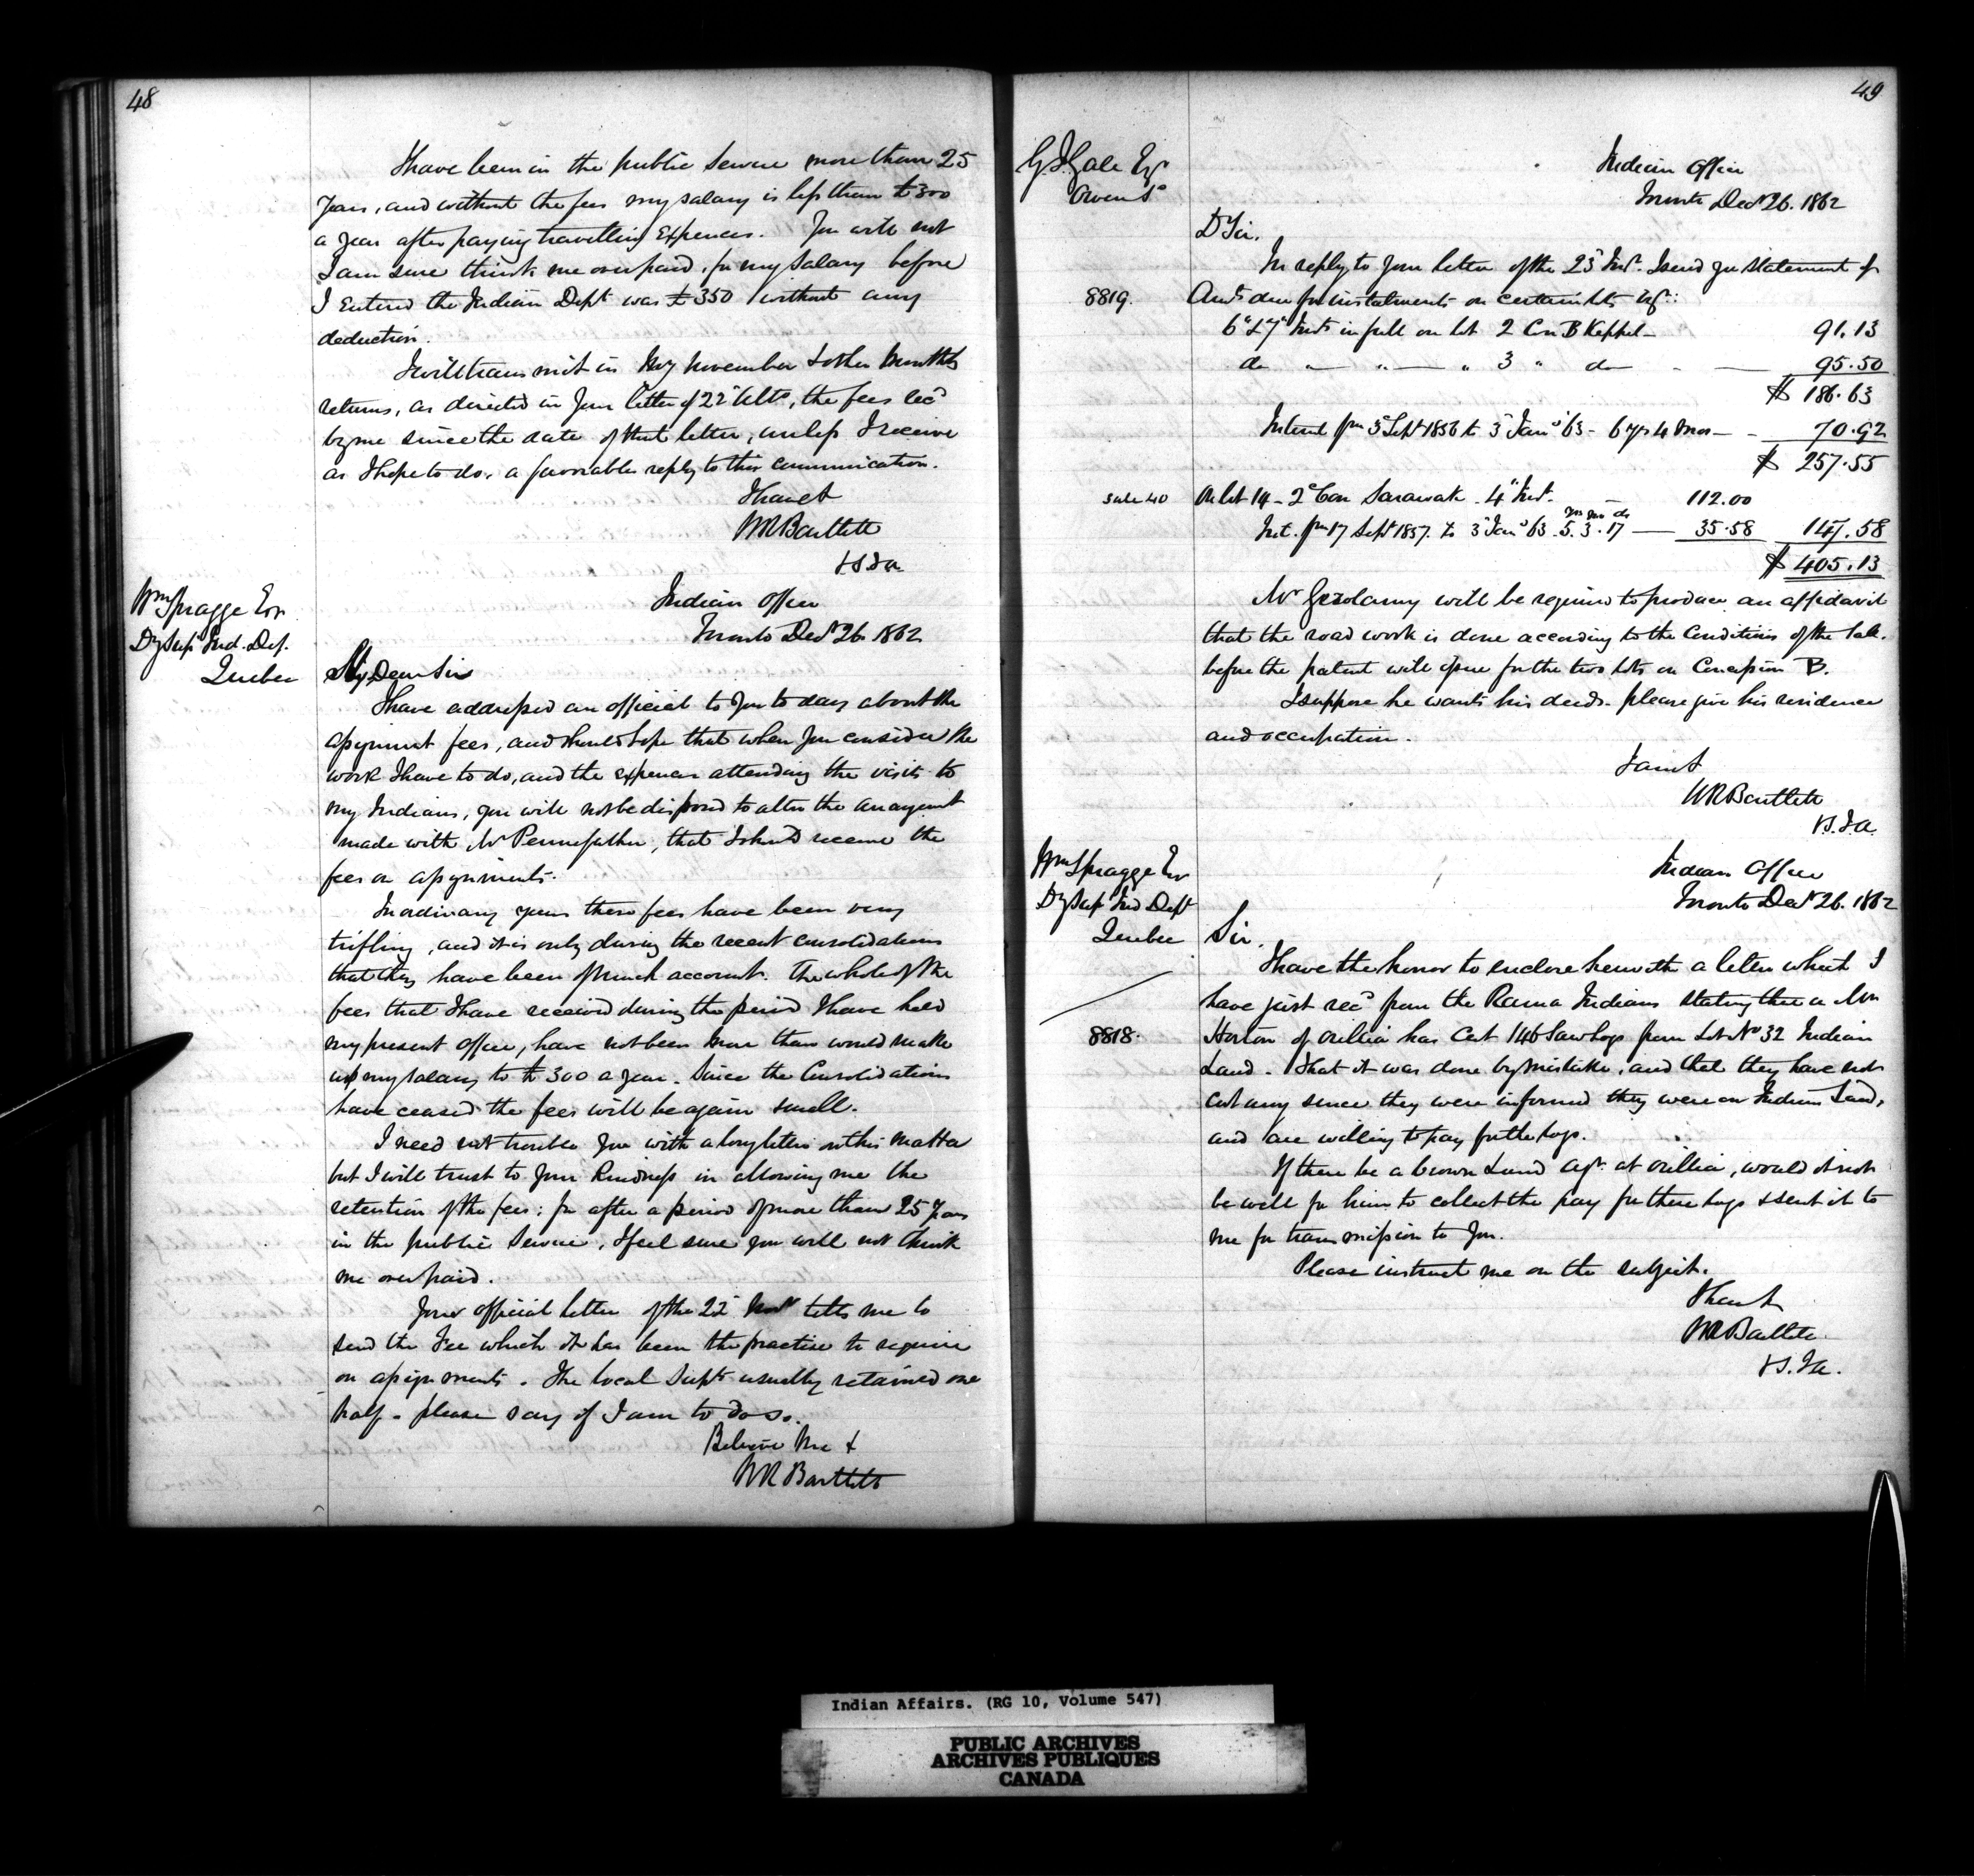 48
I have been in the public Service more than 25
years, and without the fees my salary is less than £300
a year after paying travelling Expences. You will not
I am sure think me overpaid, for my Salary before
I Entered the Indian Dept was £350 without any
deduction.
I will transmit in my November & other Months
returns, as directed in your letter of 22d Ulto, the fees recd
by me since the date of that letter, unless I receive
as I hope to do, a favorable reply to this communication.
I have &
WR Bartlett
V.S.I.A
Wm Spragge Esqr
Dy Supt Ind. Dep.
Quebec
Indian Office
Toronto Decr 26 1862
My Dear Sir
I have addressed an official to you to day about the
assignment fees, and should hope that when you consider the
work I have to do, and the expences attending the visits to
my Indians, you will not be disposed to alter the arrangemt
made with Mr Pennefather, that I should receive the
fees on assignments.
In ordinary years these fees have been very
trifling, and it is only during the recent consolidations
that they have been of much account. The whole of the
fees that I have received during the period I have held
my present office, have not been more than would make
up my salary to £300 a year. Since the Consolidations
have ceased the fees will be again small.
I need not trouble you with a long letter on this matter
but I will trust to your Kindness in allowing me the
retention of the fees; for after a period of more than 25 years
in the public Service, I feel sure you will not think
me overpaid.
Your official letter of the 22d Novr tells me to
send the Fee which it has been the practise to require
on assignments. The local Supts usually retained one
half - please say if I am to do so.
Believe Me &
WR Bartlett
49
G.J. Gale Esqr
Owen Sd
Indian Office
Toronto Decr 26. 1862
D Sir.
In reply to your letter of the 23d Inst. I send you statement of
8819.
Amts due for instalments on certain lots viz:
6th & 7th Insts in full on lot 2 Con B Keppel - 91.13
do " " " 3 " do - 95.50
$ 186.63
Interest from 3d Sept 1856 to 3d Jany 63 - 6 yrs 4 mos - 70.92
$ 257.55
Sale 40
On lot 14 - 2d Con Sarawak - 4th Inst. - 112.00
yrs mo ds
Int. from 17 Sept 1857. to 3d Jany 63. 5. 3. 17 - 35.58 147.58
$ 405.13
Mr will be required to produce an affidavit
that the road work is done according to the Conditions of the Sale.
before the patent will issue for the two lots on Concession B.
I suppose he wants his deeds. please give his residence
and occupation.
I am &
WR Bartlett
V.S.I.A.
Wm Spragge Esqr
Dy Supt Ind Dept
Quebec
Indian Office
Toronto Decr 26. 1862
Sir.
I have the honor to enclose herewith a letter which I
have just recd from the Rama Indians stating that a Mr
8818.
Horton of Orillia has Cut 146 Saw Logs from Lot No 32 Indian
Land. That it was done by mistake, and that they have not
cut any since they were informed they were on Indian Land,
and are willing to pay for the logs.
If there be a Crown Land Agt. at Orillia, would it not
be well for him to collect the pay for these logs & send it to
me for transmission to you.
Please instruct me on the subject.
I have &
WR Bartlett
V.S.I.A.
Indian Affairs. (RG 10, Volume 547)
PUBLIC ARCHIVES
ARCHIVES PUBLIQUES
CANADA